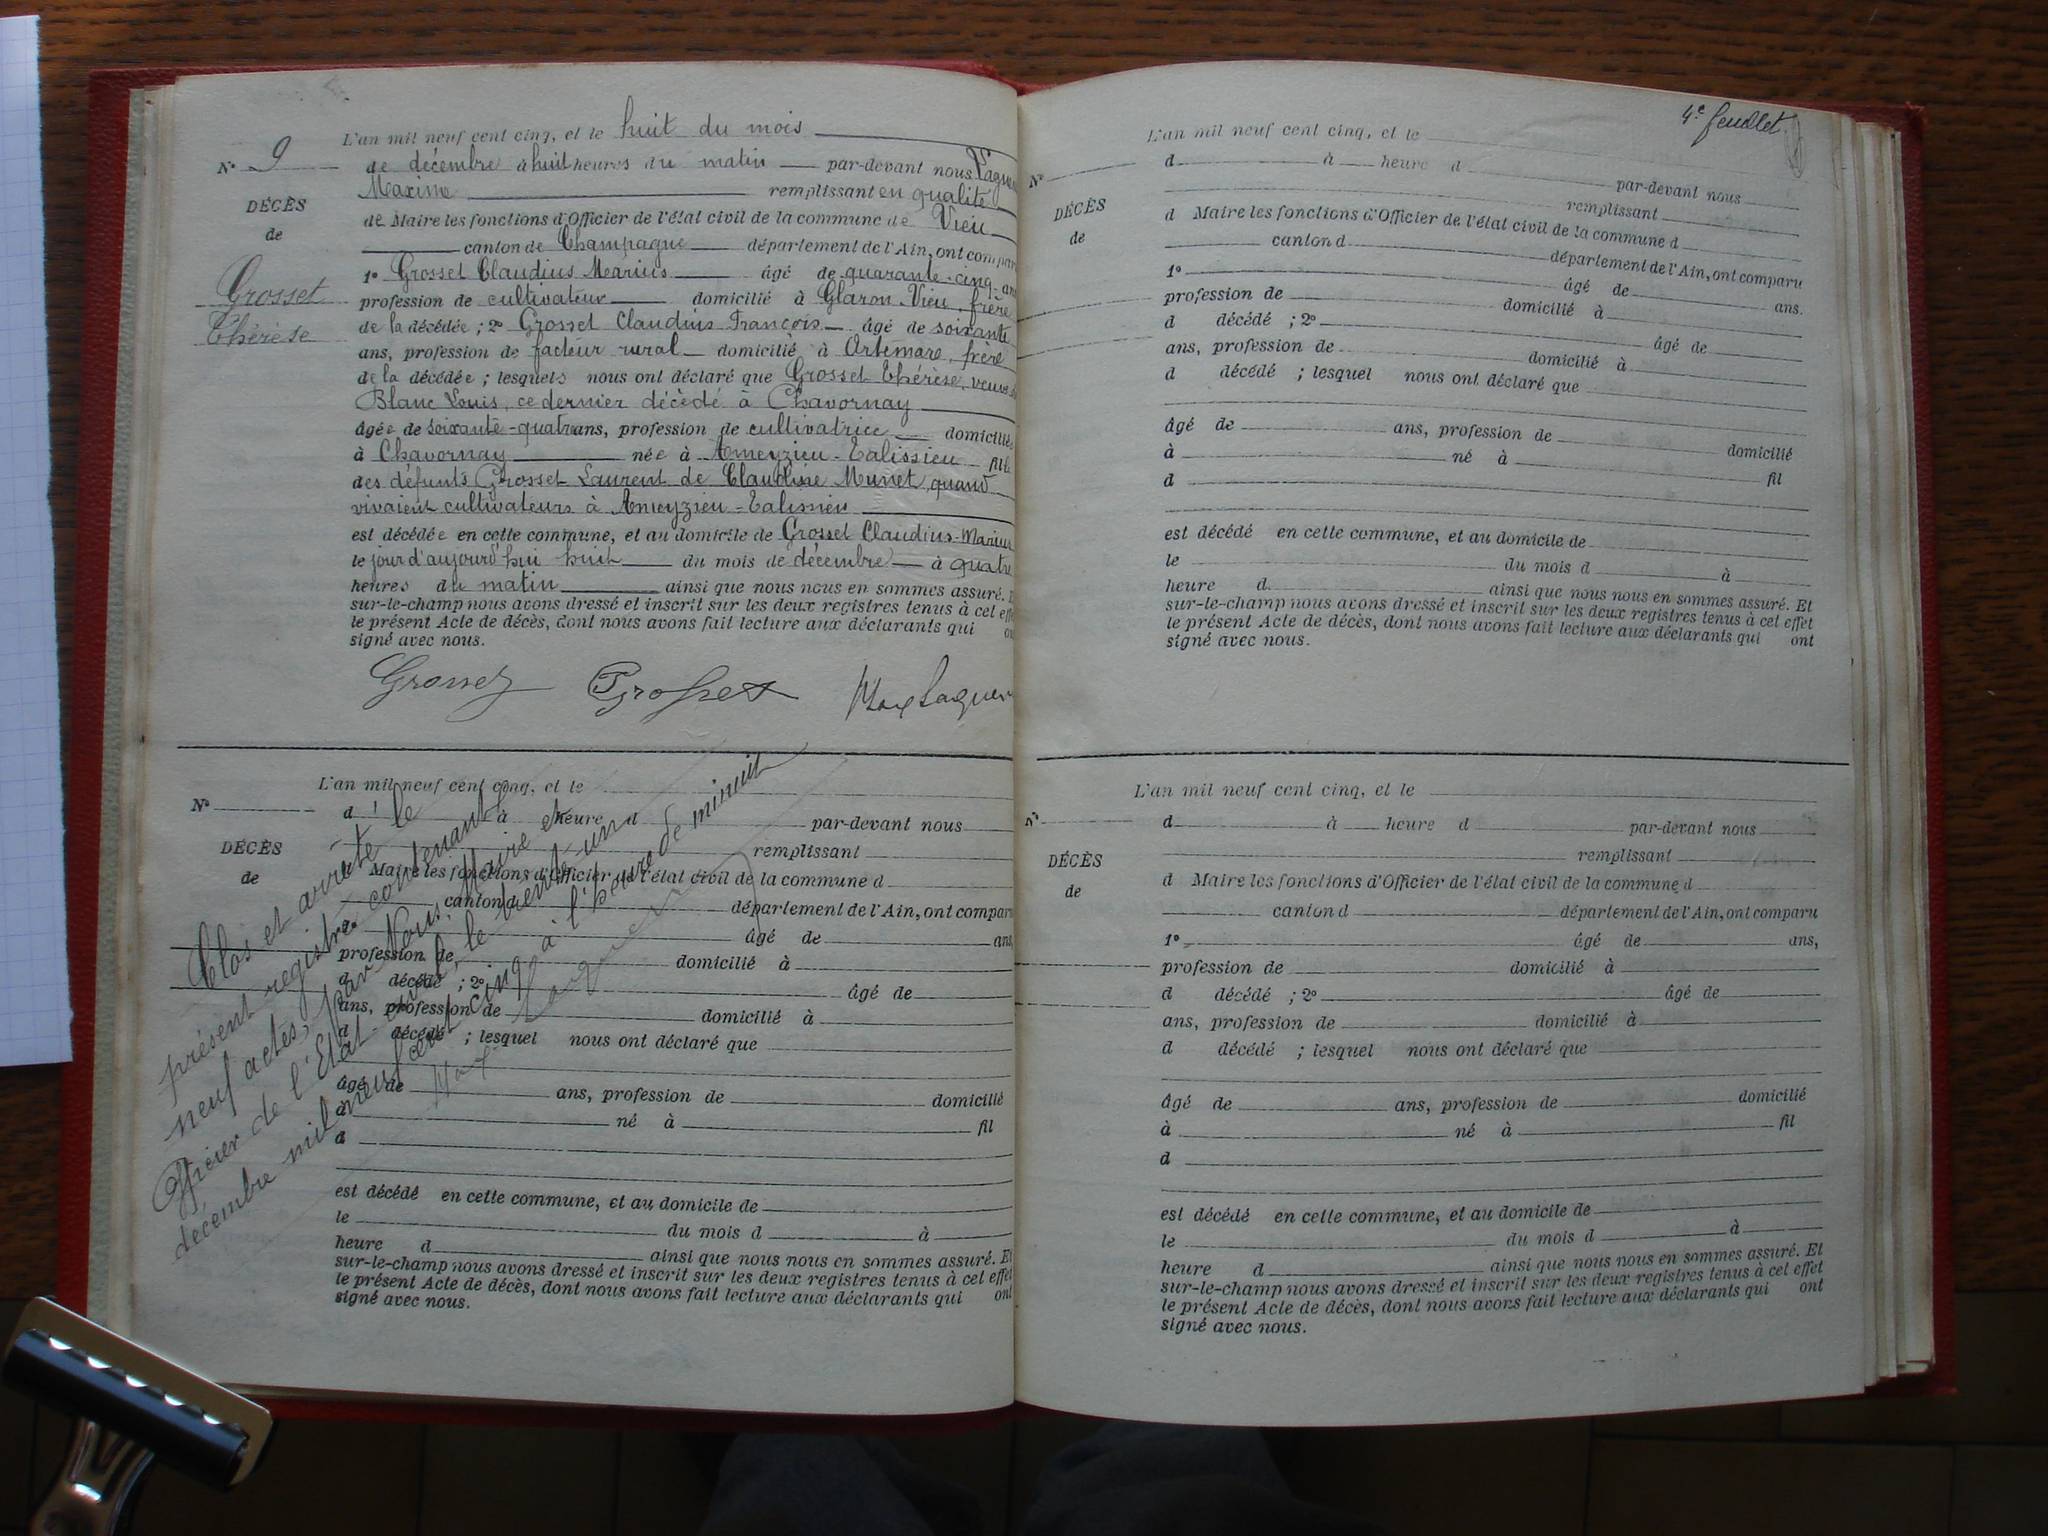 L'an mil neuf cent cinq, et le huit du mois
N° 9 de décembre à huit heures du matin par-devant nous
Maxime remplissant en qualité
DÉCÈS
de Maire les fonctions d'Officier de l'état civil de la commune de Vieu
de
canton de Champagne département de l'Ain, ont compar
1° Grosset Claudius Marius âgé de quarante-cinq ans
Grosset
Thérèse
profession de cultivateur domicilié à Glaron-Vieu, frère
de la décédée ; 2° Grosset Claudius François âgé de soixante
ans, profession de facteur rural domicilié à Artemare, frère
de la décédée ; lesquels nous ont déclaré que Grosset Thérèse, veuve
Blanc Louis, ce dernier décédé à Chavornay
âgée de soixante-quatre ans, profession de cultivatrice domiciliée
à Chavornay née à Ameyzieu-Talissieu fille
des défunts Grosset Laurent de Claudine Munet, quand
vivaient cultivateurs à Ameyzieu-Talissieu
est décédée en cette commune, et au domicile de Grosset Claudius-Marius
le jour d'aujourd'hui huit du mois de décembre à quatre
heures du matin ainsi que nous nous en sommes assuré. E
sur-le-champ nous avons dressé et inscrit sur les deux registres tenus à cet eff
le présent Acte de décès, dont nous avons fait lecture aux déclarants qui on
signé avec nous.
Grosset Grosset
L'an mil neuf cent cinq, et le
N° d à heure d par-devant nous
DÉCÈS remplissant
de
d Maire les fonctions d'Officier de l'état civil de la commune d
canton d département de l'Ain, ont comparu
âgé de ans,
profession de domicilié à
d décédé ; 2° âgé de
ans, profession de domicilié à
d décédé ; lesquel nous ont déclaré que
âgé de ans, profession de domicilié
à né à fil
d
est décédé en cette commune, et au domicile de
le du mois d à
heure d ainsi que nous nous en sommes assuré. Et
sur-le-champ nous avons dressé et inscrit sur les deux registres tenus à cet effet
le présent Acte de décès, dont nous avons fait lecture aux déclarants qui ont
signé avec nous.
Clos et arrêté le
présent registre contenant
neuf actes, par Nous, Maire et
Officier de l'Etat civil, le trente-un
décembre mil neuf cent cinq à l'heure de minuit
4e feuillet
L'an mil neuf cent cinq, et le
N° d à heure d par-devant nous
DÉCÈS remplissant
de
d Maire les fonctions d'Officier de l'état civil de la commune d
canton d département de l'Ain, ont comparu
1° âgé de ans.
profession de domicilié à
d décédé ; 2° âgé de
ans, profession de domicilié à
d décédé ; lesquel nous ont déclaré que
âgé de ans, profession de domicilié
à né à fil
d
est décédé en cette commune, et au domicile de
le du mois d à
heure d ainsi que nous nous en sommes assuré. Et
sur-le-champ nous avons dressé et inscrit sur les deux registres tenus à cet effet
le présent Acte de décès, dont nous avons fait lecture aux déclarants qui ont
signé avec nous.
L'an mil neuf cent cinq, et le
N° d à heure d par-devant nous
DÉCÈS remplissant
de
d Maire les fonctions d'Officier de l'état civil de la commune d
canton d département de l'Ain, ont comparu
1° âgé de ans,
profession de domicilié à
d décédé ; 2° âgé de
ans, profession de domicilié à
d décédé ; lesquel nous ont déclaré que
âgé de ans, profession de domicilié
à né à fil
d
est décédé en cette commune, et au domicile de
le du mois d à
heure d ainsi que nous nous en sommes assuré. Et
sur-le-champ nous avons dressé et inscrit sur les deux registres tenus à cet effet
le présent Acte de décès, dont nous avons fait lecture aux déclarants qui ont
signé avec nous.